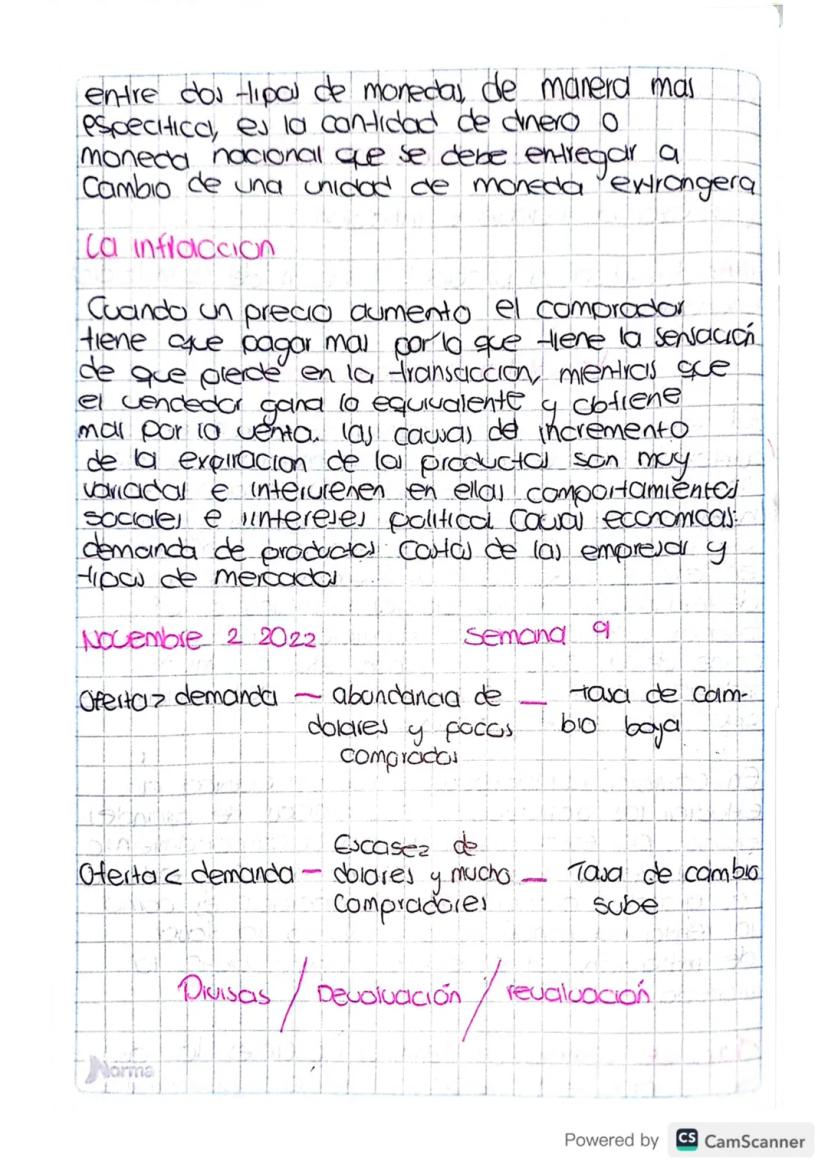 entre dos tipos de monedas, de manera mas
especifica, es la cantidad de dinero o
moneda nacional que se debe entregar a
Cambio de una unidad de moneda extrangera
La inflaccion
Cuando un precio aumento el comprador
tiene que pagar mas por lo que tiene la sensación
de que pierde en la transaccion, mientras que
el vendedor gana lo equivalente y obtiene
mas por la venta. las causas de incremento
de la expiracion de los productos son muy
variadas e intervienen en ellas comportamientos
sociales e intereses politicos Causas economicas:
demanda de productos Costos de las empresas y
tipos de mercados
Noviembre 2 2022 Semana 9
Oferta > demanda — abundancia de — tasa de cam-
dolares y pocos bio baja
comprados
Escasez de
Oferta < demanda — dolares y mucho — Tasa de cambio
compradores sube
Divisas / Devaluación / revaluación
Norma
Powered by CS CamScanner